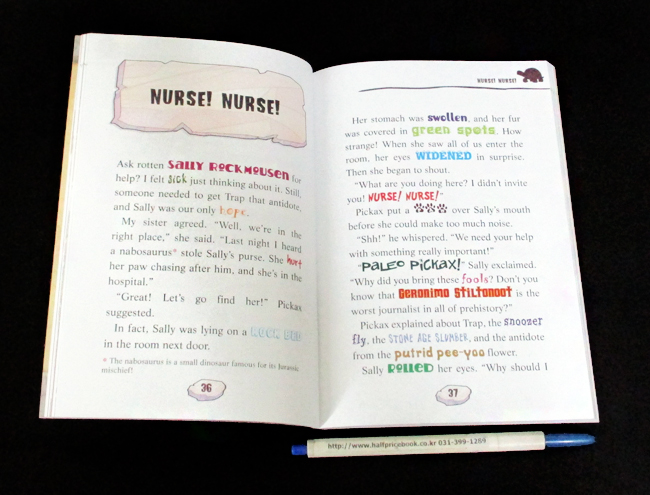 NURSE! NURSE!
Ask rotten SALLY ROCKMOUSEN for
help? I felt sick just thinking about it. Still,
someone needed to get Trap that antidote,
and Sally was our only hope.
My sister agreed. “Well, we’re in the
right place,” she said. “Last night I heard
a nabosaurus* stole Sally’s purse. She hurt
her paw chasing after him, and she’s in the
hospital.”
“Great! Let’s go find her!” Pickax
suggested.
In fact, Sally was lying on a ROCK BED
in the room next door.
* The nabosaurus is a small dinosaur famous for its Jurassic
mischief!
36
NURSE! NURSE!
Her stomach was swollen, and her fur
was covered in green spots. How
strange! When she saw all of us enter the
room, her eyes WIDENED in surprise.
Then she began to shout.
“What are you doing here? I didn’t invite
you! NURSE! NURSE!”
Pickax put a over Sally’s mouth
before she could make too much noise.
“Shh!” he whispered. “We need your help
with something really important!”
“PALEO PICKAX!” Sally exclaimed.
“Why did you bring these fools? Don’t you
know that GERONIMO STILTONOOT is the
worst journalist in all of prehistory?”
Pickax explained about Trap, the snoozer
fly, the STONE AGE SLUMBER, and the antidote
from the putrid pee-yoo flower.
Sally ROLLED her eyes. “Why should I
37
http://www.halfpricebook.co.kr 031-399-1289